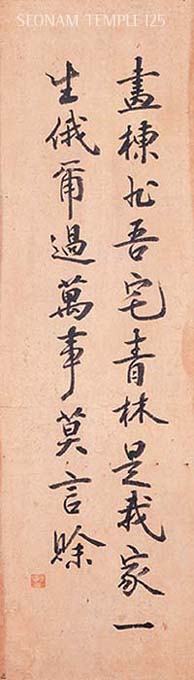 SEONAM TEMPLE 125
畫棟非吾宅青林是我家一
生俄爾過萬事莫言賒